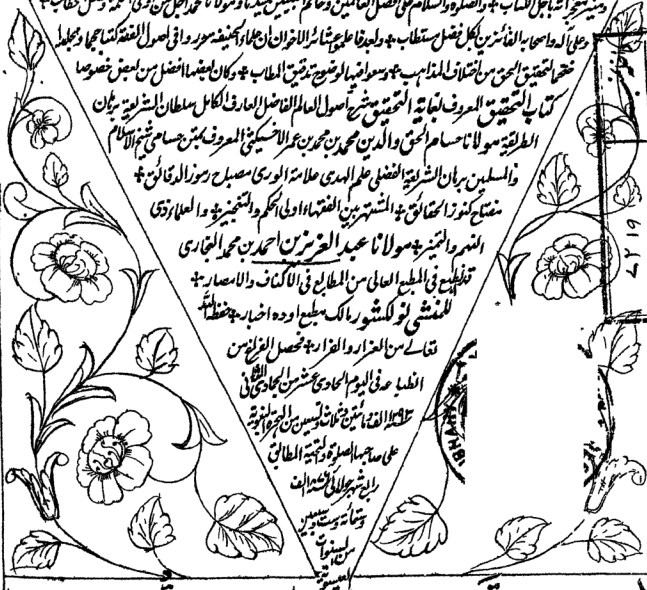 وعلى آله واصحابه الفائزين بكل فضل مستطاب + وبعد فاعلموا معشر الاخوان ان علماء الحنيفة حرروا فى اصول الفقه كتابا حجما ومجلدا
فيها لتحقيق الحق من اختلاف المذاهب + وسعوا فيها لوضوح تدقيق المطالب + وكان بعضها افضل من بعض خصوصا
كتاب التحقيق المعروف بغاية التحقيق شرح اصول العالم الفاضل العارف الكامل سلطان الشريعة برهان
الطريقة مولانا حسام الحق والدين محمد بن محمد بن عمر الاخسيكثى المعروف بمتن حسامى شيخ الاسلام
والمسلمين برهان الشريعة الفضلى علم الهدى علامة الورى مصباح رموز الدقائق +
مفتاح كنوز الحقائق + المشتهر بين الفقهاء اولى الحكم والتنجيز + والعلماء ذى
الفهم والتميز + مولانا عبد العزيز بن احمد بن محمد البخارى
قد طبع فى المطبع العالى من المطابع فى الاكناف والامصار +
للمنشى نولكشور مالك مطبع اوده اخبار + حفظه الله
تعالى من العزار والفرار + فحصل الفراغ من
انطباعه فى اليوم الحادى عشر من الجمادى الثانى
سنة ١٢٩٣ الف ومائتين وثلاث وتسعين من الهجرة النبوية
على صاحبها الصلوة والتحية المطابق
رابع شهر جولائى سنة ١٨٧٦ الف
وثمانمائة وست وسبعين
من السنوات
العيسوية